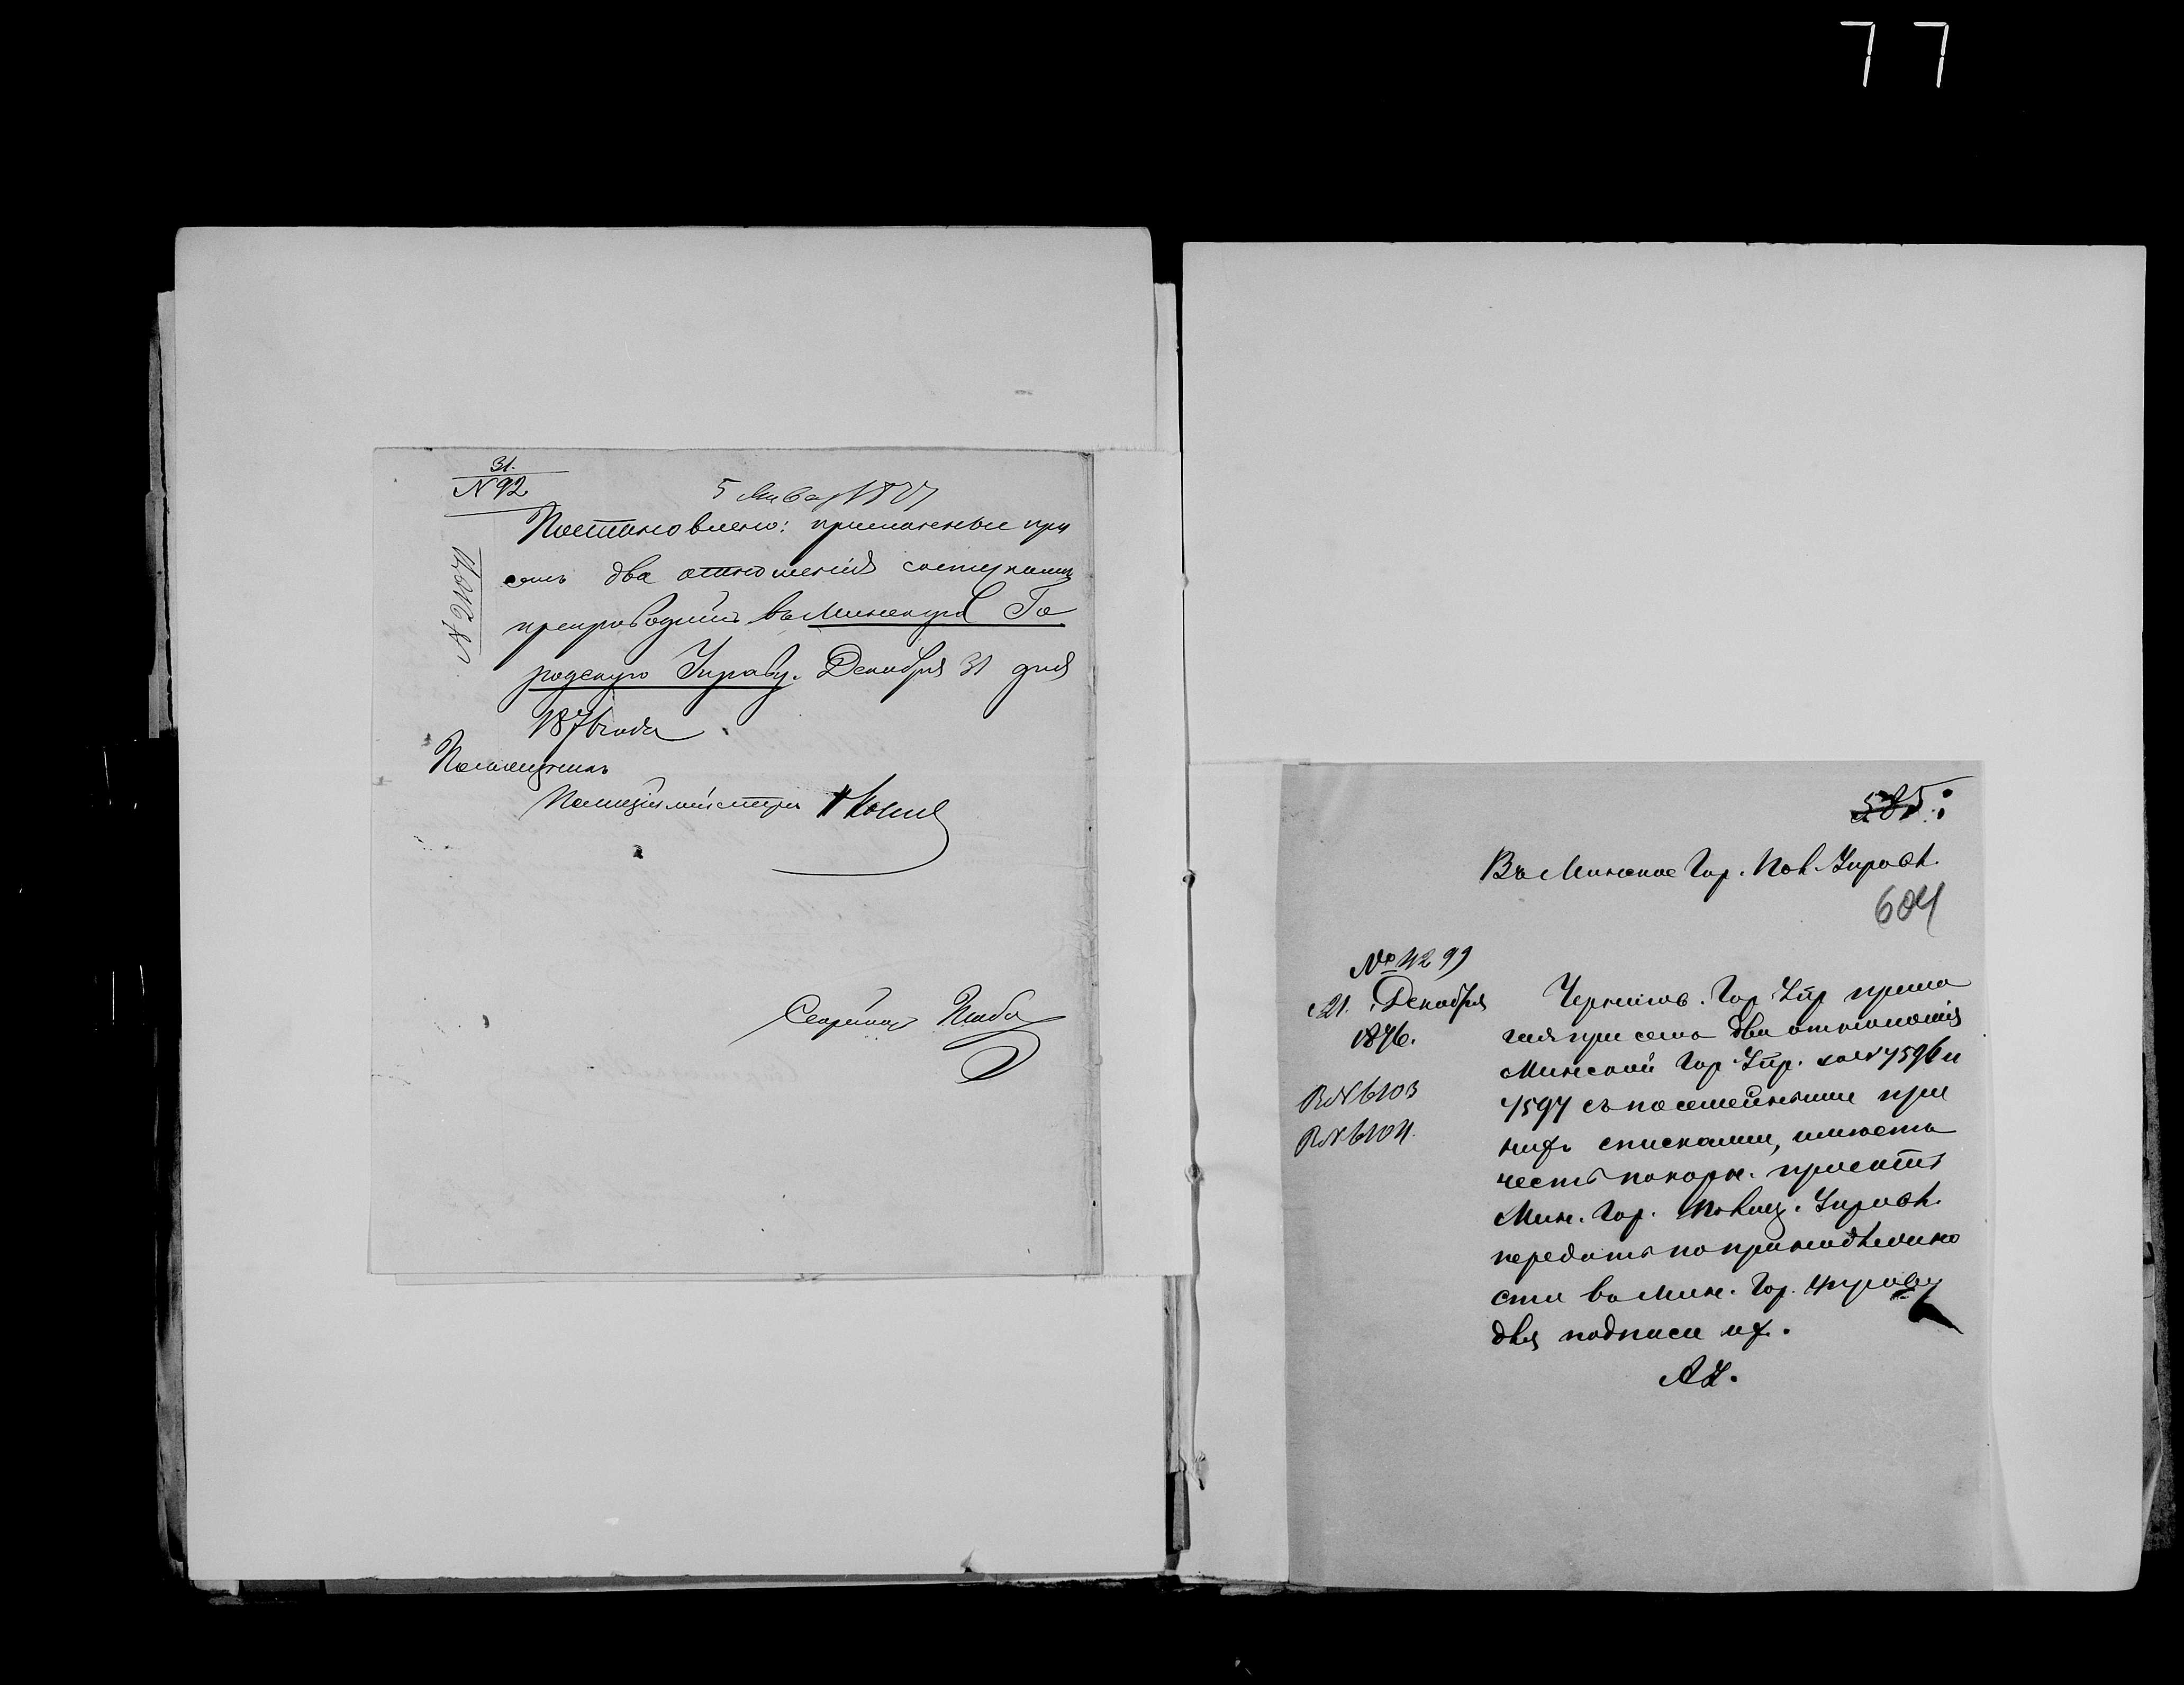 77
31.
N 92
5 Янва 1877
N 21071
Постановлено: приложенные при
семъ два отношенія
препроводить въ Минскую Го
родскую Управу. Декабря 31 дня
1876 года
Помощникъ
Полиціймейстера
Секретарь
585
Въ Минское Гор. Пол. Управл.
604
№ 4299
21. Декабря
1876.
В N 6103
В N 6104.
Чернигов. Гор. Упр прила
гая при семъ два отношенія
Минской Гор. Упр. за N 4596 и
4597 съ посемейными при
нихъ списками, имѣетъ
честь покорн. просить
Мин. Гор. Полиц. Управл.
передать по принадлежно
сти въ Мин. Гор. Управу
для подписи их.